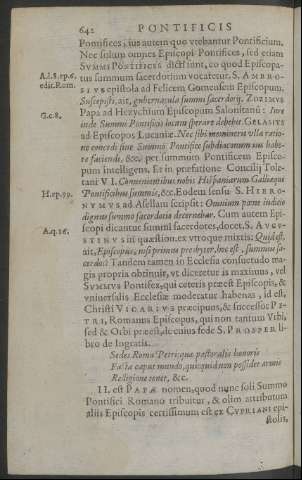 642 PONTIFICIS
Pontifices, ius autem quo vtebantur Pontificium.
Nec solum omnes Episcopi Pontifices, sed etiam
SVMMI PONTIFICES dicti sunt, eo quod Episcopa-
A.l.8.ep.6. tus summum sacerdotium vocaretur. S. AMBRO-
edit.Rom. SIVS epistola ad Felicem Comensem Episcopum,
Suscepisti, ait, gubernacula summi sacerdotij. ZOZIMVS
Papa ad Hezychium Episcopum Salonitanū:
G.c.8. inde Summi Pontificis locum sperare debebit. GELASIVS
ad Episcopos Lucaniæ. Nec sibi meminerit vlla ratio-
ne concedi sine Summo Pontifice subdiaconum ius habe-
re faciendi, &c. per summum Pontificem Episco-
pum intelligens. Et in præfatione Concilij Tole-
tani VI. Conuenientibus nobis Hispaniarum Galliæque
H.ep.99. Pontificibus summis, &c. Eodem sensu S. HIERO-
NYMVS ad Asellam scripsit: Omnium pœne iudicio
dignus summo sacerdotio decernebar. Cum autem Epi-
scopi dicantur summi sacerdotes, docet S. AVGV-
A.q.16. STINVS in quæstion. ex vtroque mixtis: Quid est,
ait, Episcopus, nisi primus presbyter, hoc est, summus sa-
cerdos? Tandem tamen in Ecclesia consuetudo ma-
gis propria obtinuit, vt diceretur is maximus, vel
SVMMVS Pontifex, qui ceteris præest Episcopis, &
vniuersalis Ecclesiæ moderatur habenas, id est,
Christi VICARIVS præcipuus, & successor PE-
TRI, Romanus Episcopus, qui non tantum Vrbi,
sed & Orbi præest, de cuius sede S. PROSPER li-
bro de Ingratis:
Sedes Roma Petri: quæ pastoralis honoris
Facta caput mundo, quicquid non possidet armis
Relligione tenet, &c.
II. est PAPÆ nomen, quod nunc soli Summo
Pontifici Romano tribuitur, & olim attributum
aliis Episcopis certissimum est ex CYPRIANI epi-
stolis,